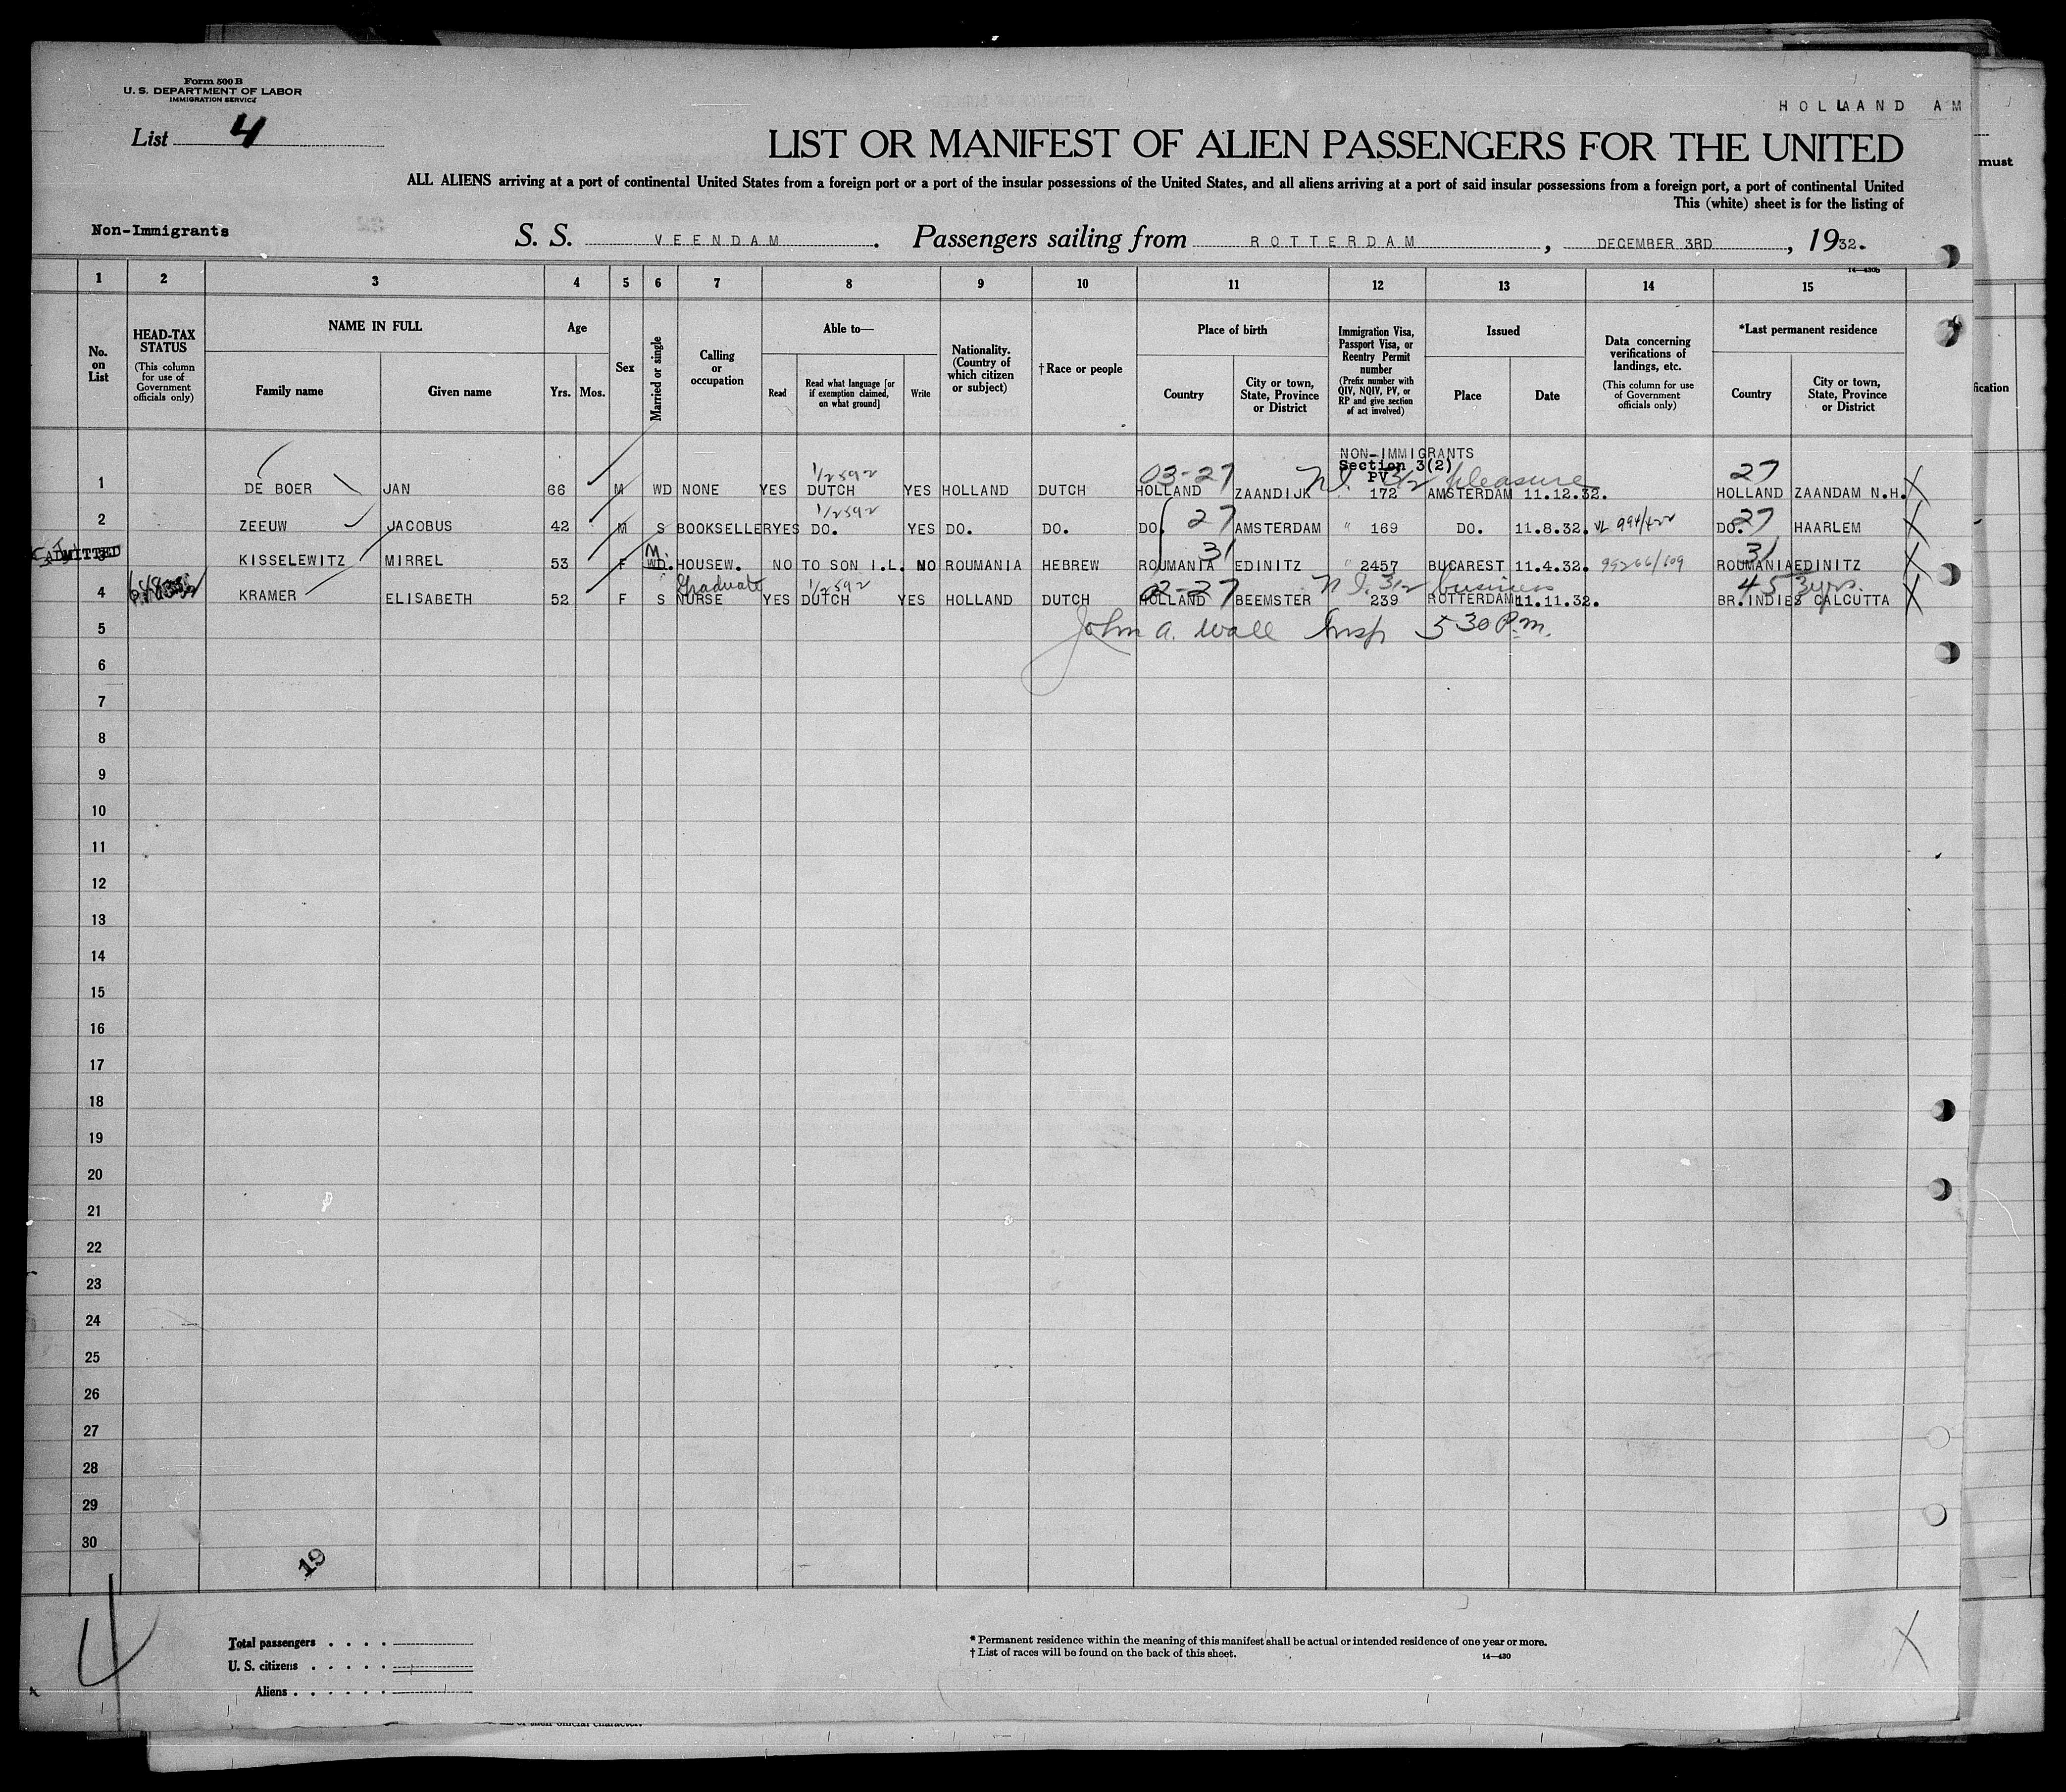 Form 500 B
U. S. DEPARTMENT OF LABOR
IMMIGRATION SERVICE
HOLLAND AM
List 4
LIST OR MANIFEST OF ALIEN PASSENGERS FOR THE UNITED
must
ALL ALIENS arriving at a port of continental United States from a foreign port or a port of the insular possessions of the United States, and all aliens arriving at a port of said insular possessions from a foreign port, a port of continental United
This (white) sheet is for the listing of
Non-Immigrants S. S. VEENDAM. Passengers sailing from ROTTERDAM, DECEMBER 3RD, 1932.
14—430b
1 2 3 4 5 6 7 8 9 10 11 12 13 14 15
No. on List
HEAD-TAX STATUS (This column for use of Government officials only)
NAME IN FULL Family name Given name
Age Yrs. Mos.
Sex
Married or single
Calling or occupation
Able to— Read Read what language [or if exemption claimed, on what ground] Write
Nationality. (Country of which citizen or subject)
† Race or people
Place of birth Country City or town, State, Province or District
Immigration Visa, Passport Visa, or Reentry Permit number (Prefix number with QIV, NQIV, PV, or RP and give section of act involved)
Issued Place Date
Data concerning verifications of landings, etc. (This column for use of Government officials only)
*Last permanent residence Country City or town, State, Province or District
ication
NON-IMMIGRANTS
Section 3(2)
PV
03-27 N.I. 3/2 pleasure 27
1 DE BOER JAN 66 M WD NONE YES DUTCH YES HOLLAND DUTCH HOLLAND ZAANDIJK 172 AMSTERDAM 11.12.32. HOLLAND ZAANDAM N.H. X
2 ZEEUW JACOBUS 42 M S BOOKSELLER YES DO. YES DO. DO. DO. 27 AMSTERDAM " 169 DO. 11.8.32. VL 994/422 DO. 27 HAARLEM X
ADMITTED
M. 31 31
3 KISSELEWITZ MIRREL 53 F WD. HOUSEW. NO TO SON I.L. NO ROUMANIA HEBREW ROUMANIA EDINITZ " 2457 BUCAREST 11.4.32. 99266/609 ROUMANIA EDINITZ X
Graduate 2-27 N.I. 3/2 business 45 3 yrs.
4 KRAMER ELISABETH 52 F S NURSE YES DUTCH YES HOLLAND DUTCH HOLLAND BEEMSTER 239 ROTTERDAM 11.11.32. BR.INDIES CALCUTTA X
5 John A. Wall Insp 5 30 P.m.
6
7
8
9
10
11
12
13
14
15
16
17
18
19
20
21
22
23
24
25
26
27
28
29
30
19
4
Total passengers . . . .
U. S. citizens . . . . .
Aliens . . . . . .
* Permanent residence within the meaning of this manifest shall be actual or intended residence of one year or more.
† List of races will be found on the back of this sheet.
14—430
X
of their official character.